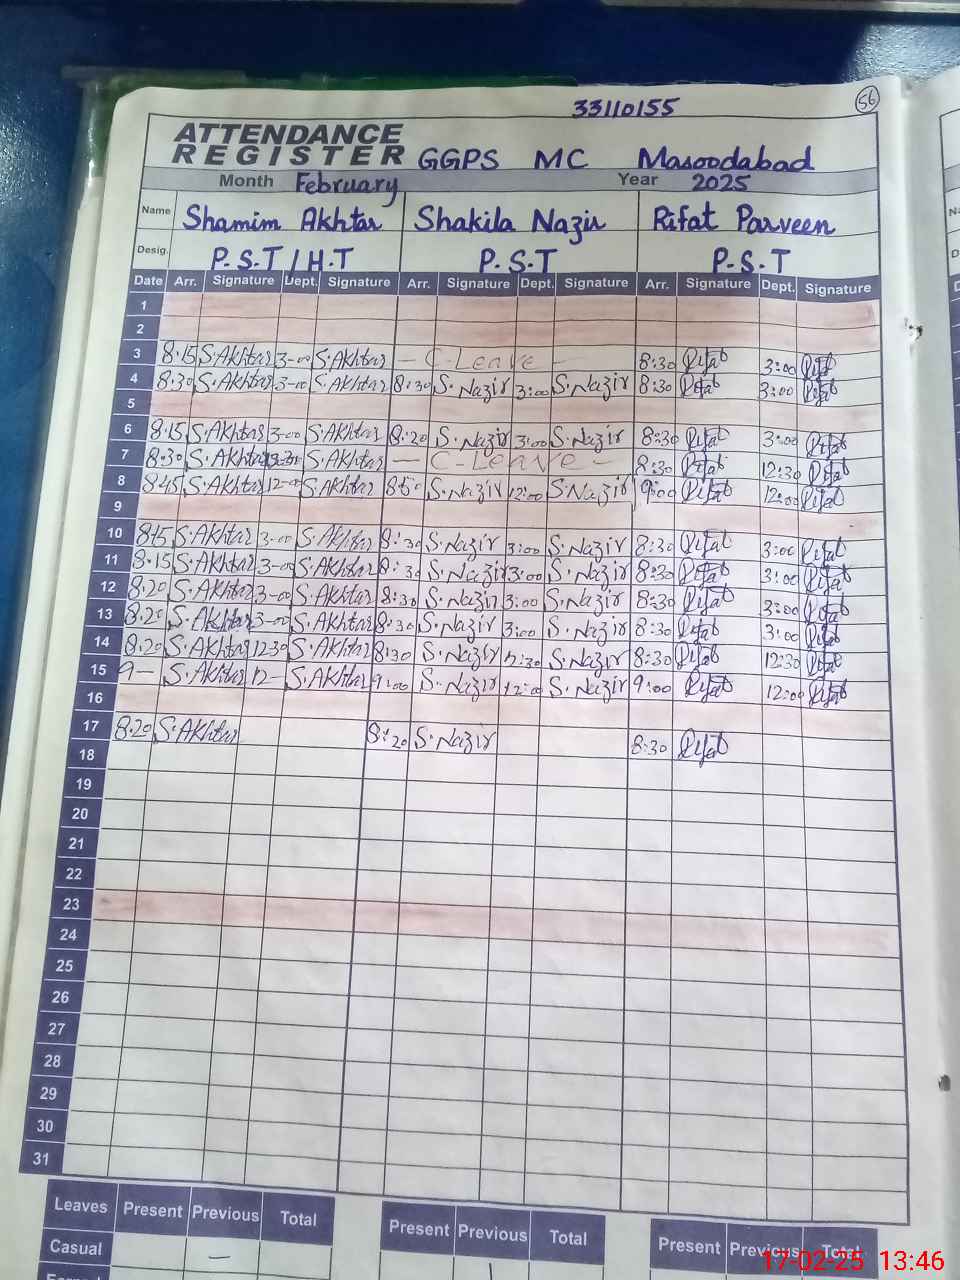 33110155
56
ATTENDANCE
REGISTER GGPS MC Masoodabad
Month February Year 2025
Name Shamim Akhtar Shakila Nazir Rifat Parveen
Desig. P.S.T / H.T P.S.T P.S.T
Date Arr. Signature Dept. Signature Arr. Signature Dept. Signature Arr. Signature Dept. Signature
1
2
3 8.15 S.Akhtar 3-00 S.Akhtar — C-Leave — 8:30 Rifat 3:00 Rifat
4 8.30 S.Akhtar 3-00 S.Akhtar 8:30 S.Nazir 3:00 S.Nazir 8:30 Rifat 3:00 Rifat
5
6 8.15 S.Akhtar 3-00 S.Akhtar 8:20 S.Nazir 3:00 S.Nazir 8:30 Rifat 3:00 Rifat
7 8.30 S.Akhtar S.Akhtar — C-Leave — 8:30 Rifat 12:30 Rifat
8 8.45 S.Akhtar 12-00 S.Akhtar S.Nazir 12:00 S.Nazir 9:00 Rifat 12:00 Rifat
9
10 8.15 S.Akhtar 3-00 S.Akhtar 8:30 S.Nazir 3:00 S.Nazir 8:30 Rifat 3:00 Rifat
11 8.15 S.Akhtar 3-00 S.Akhtar 8:30 S.Nazir 3:00 S.Nazir 8:30 Rifat 3:00 Rifat
12 8.20 S.Akhtar 3-00 S.Akhtar 8:30 S.Nazir 3:00 S.Nazir 8:30 Rifat 3:00 Rifat
13 8.20 S.Akhtar 3-00 S.Akhtar 8:30 S.Nazir 3:00 S.Nazir 8:30 Rifat 3:00 Rifat
14 8.20 S.Akhtar 12-30 S.Akhtar 8:30 S.Nazir 12:30 S.Nazir 8:30 Rifat 12:30 Rifat
15 9— S.Akhtar 12— S.Akhtar 9:00 S.Nazir 12:00 S.Nazir 9:00 Rifat 12:00 Rifat
16
17 8.20 S.Akhtar 8:20 S.Nazir 8:30 Rifat
18
19
20
21
22
23
24
25
26
27
28
29
30
31
Leaves Present Previous Total Present Previous Total Present Previous Total
Casual —
17-02-25 13:46